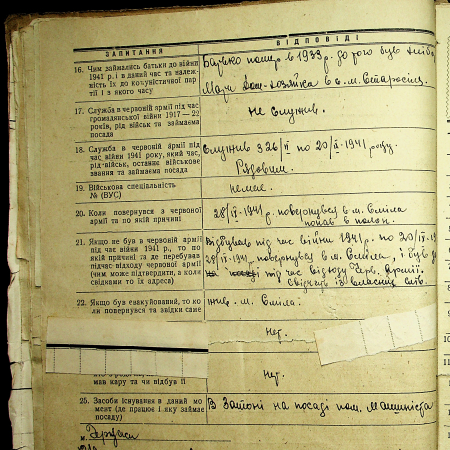 ЗАПИТАННЯ
ВІДПОВІДІ
16. Чим займались батьки до війни
1941 р. і в даний час та належ-
ність їх до комуністичної пар-
тії і з якого часу
Батько помер в 1933 р. до того був
Мати Дом-хозяйка в с. м. Старосіл.
17. Служба в червоній армії під час
громадянської війни 1917—22
років, рід військ та займаєма
посада
Не служив.
18. Служба в червоній армії під
час війни 1941 року, який час,
рід військ, останнє військове
звання та займаєма посада
Служив з 26/VI по 20/IX-1941 року.
Рядовим.
19. Військова спеціальність
№ (ВУС)
Немає.
20. Коли повернувся з червоної
армії та по якій причині
28/IX-1941р. повернувся в м. Сміла
попав в полон.
21. Якщо не був в червоній армії
під час війни 1941 р., то по
якій причині та де перебував
підчас відходу червоної армії
(чим може підтвердити, а коли
свідками то їх адреса)
Відбував під час війни 1941р. по 20/IX-19
28/IX-194 р. повернувся в м. Сміла, і був
під час відходу Черв. Армії.
22. Якщо був евакуйований, то ко-
ли повернувся та звідки саме
жив. м. Сміла.
Нет.
мав кару та чи відбув її
Нет.
25. Засоби існування в даний мо-
мент (де працює і яку займає
посаду)
В Затоні на посаді пом. Машиніста
м. Черкаси